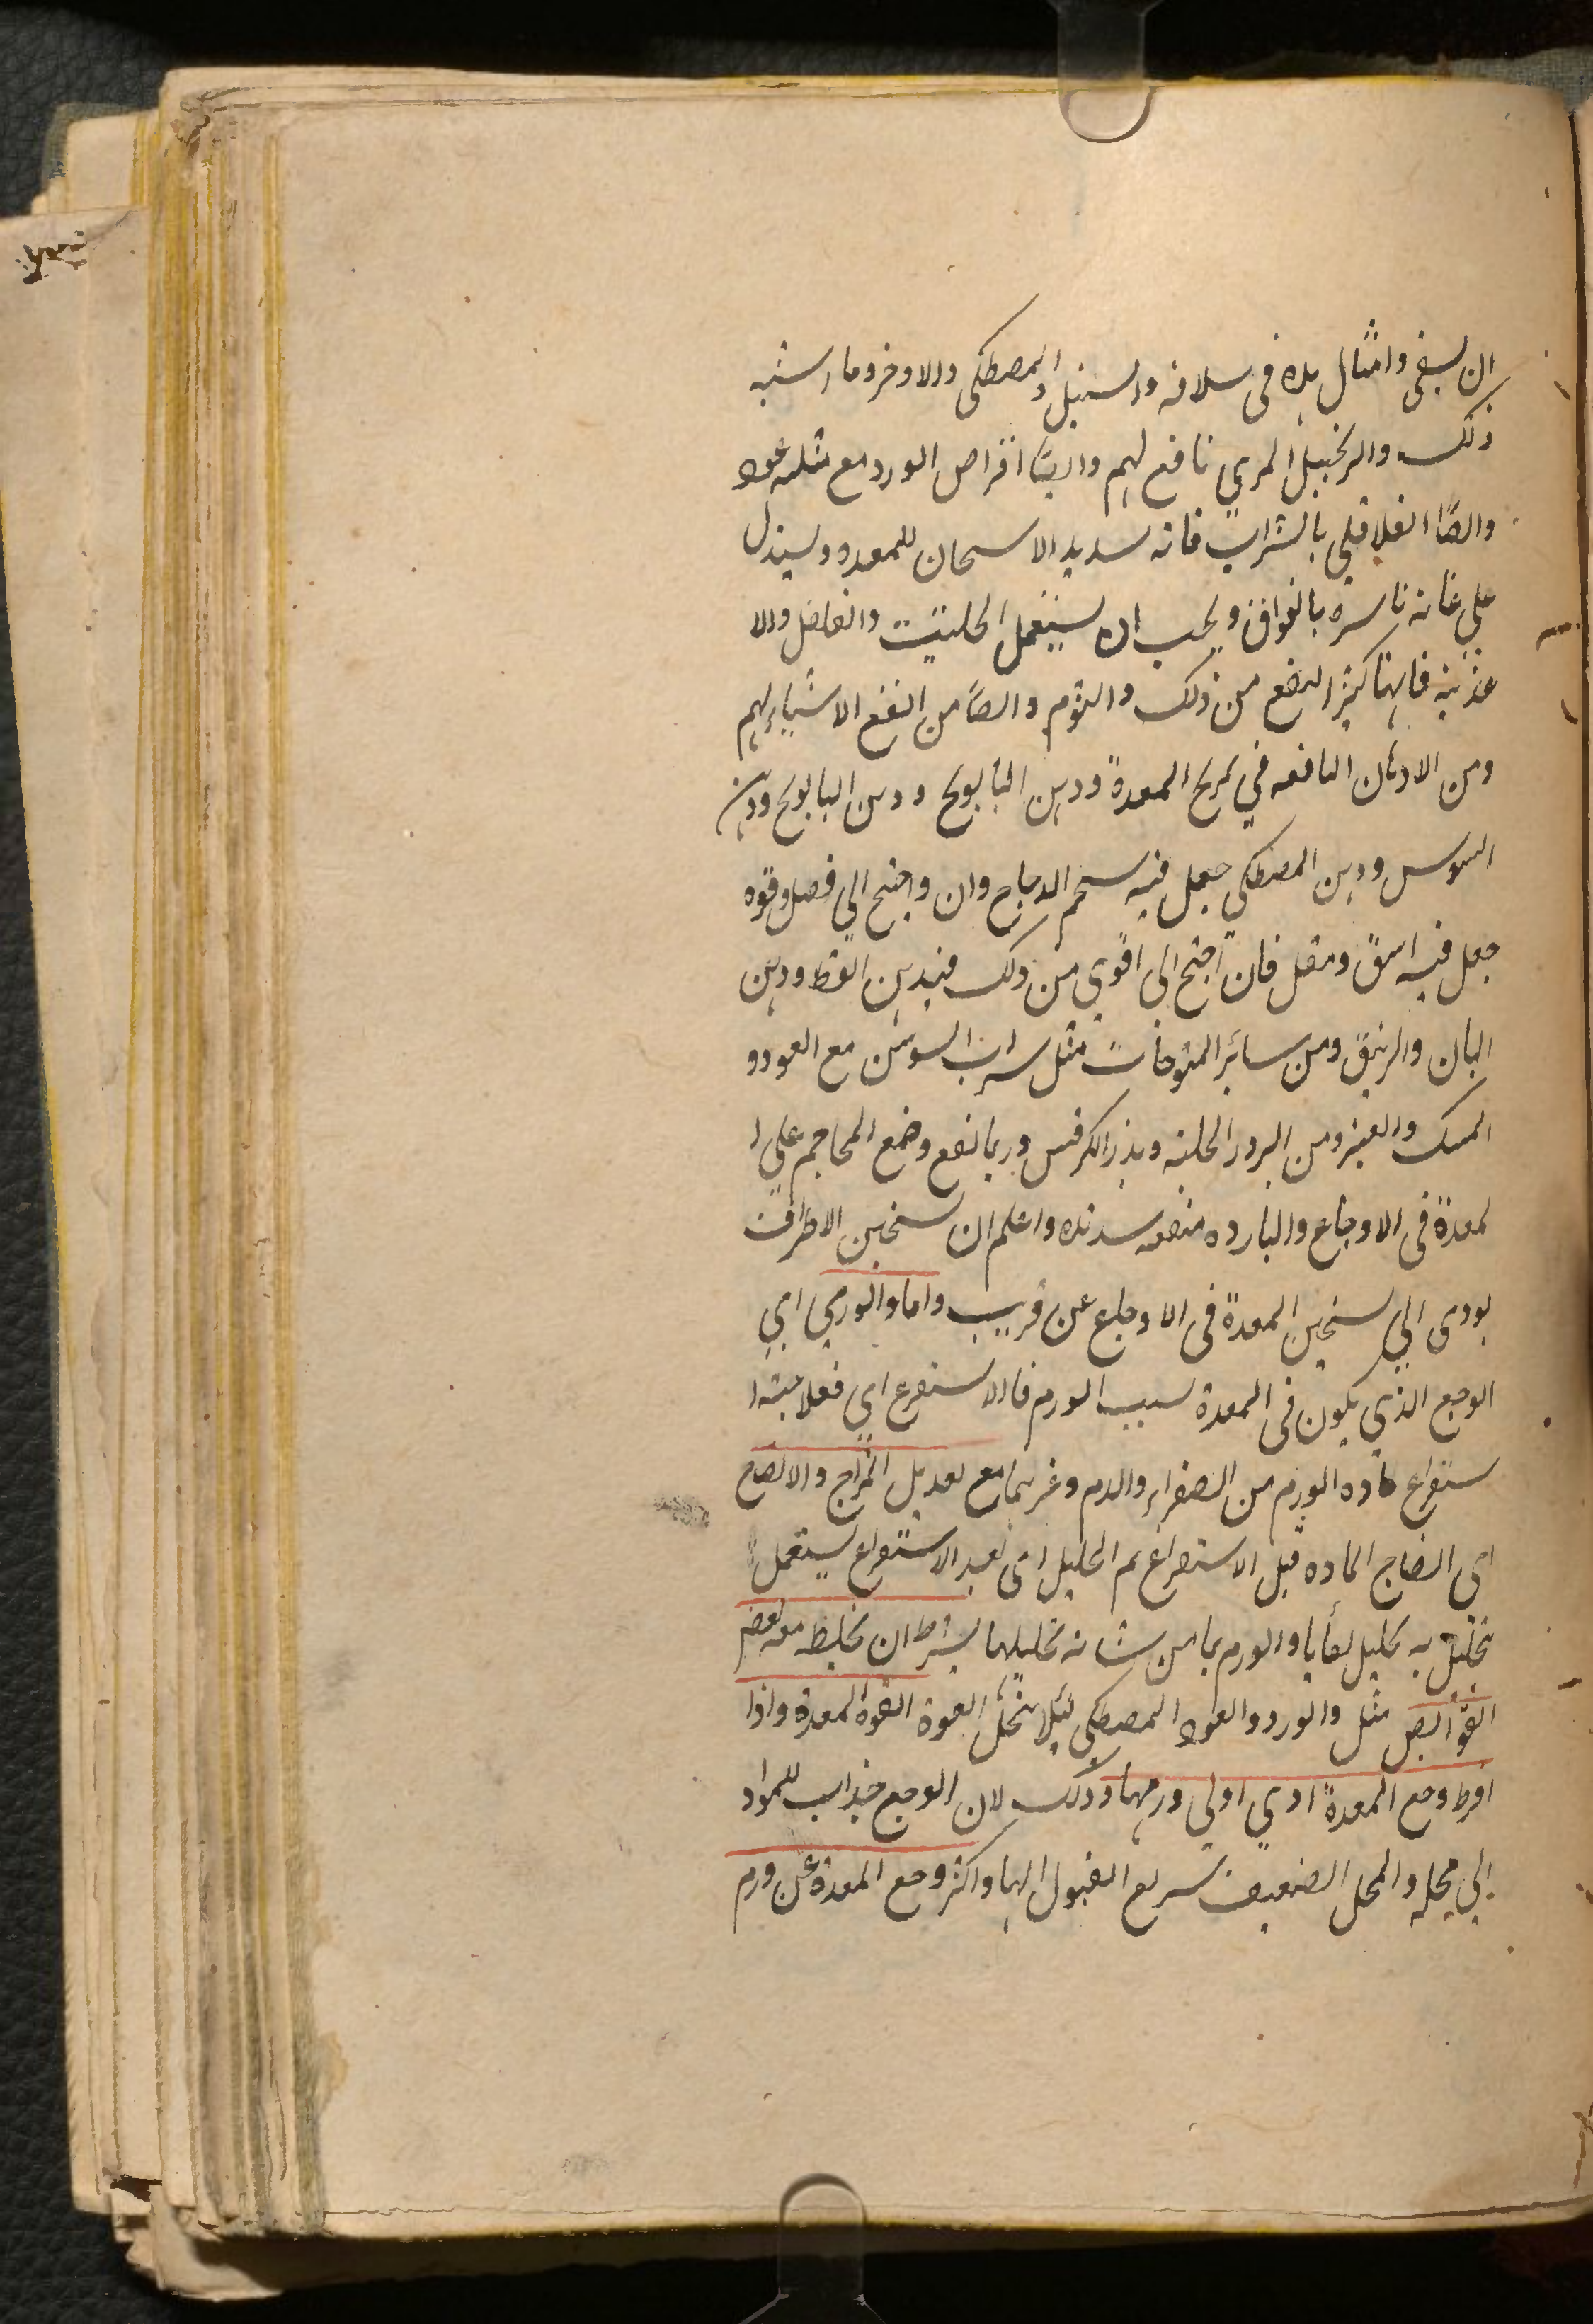 ان يسقى وامثال هذه فى سلافه والسنبل والمصطكى والاذخر وما اشبه
ذلك والزنجبيل المربى نافع لهم وايضًا اقراص الورد مع مثليه عود
وايضًا الفلافلى بالشراب فانه شديد الاسخان للمعده ويستدل
على غاية تاثيره بالفواق ويجب ان يستعمل الحلتيت والفلفل والا
غذيه فانهنا كثير النفع من ذلك والثوم وايضًا من انفع الاشياء لهم
ومن الادهان النافعه فى تمريخ المعدة ودهن البابونج ودهن البابونج ودهن
السوس ودهن المصطكى جعل فيه شحم الدجاج وان واحتيج الى فضل وقوه
جعل فيه اشق ومقل فان احتيج الى اقوى من ذلك فبدهن القسط ودهن
البان والزنبق ومن سائر المتوخات مثل شراب السوسن مع العود و
المسك والعنبر ومن البزور الحلبه وبذر الكرفس وربما نفع وضع المحاجم على ا
لمعدة فى الاوجاع والبارده منفعه شديده واعلم ان تسخين الاطراف
يودى الى تسخين المعدة فى الاوجاع عن قريب واما والورمى اى
الوجع الذى يكون فى المعدة لسبب الورم فالاستفرع اى فعلاجه ا
ستفراع ماده الورم من الصفراء والدم وغيرهما مع تعديل المزاج والانضاج
اى انضاج الماده قبل الاستفراغ ثم التحليل اى بعد الاستفراغ يستعمل
تحليل به تحليل بقايا والورم بما من شانه تحليلها بشرط ان تخليط معه بعض
القوابض مثل والورد والعود المصطكى لئلا ينحل القوة القوة المعدة واذا
افرط وجع المعدة ادى اولى ورمها وذلك لان الوجع جذاب للمواد
الى محله والمحل الضعيف سريع القبول اليها واكثر وجع المعدة عن ورم